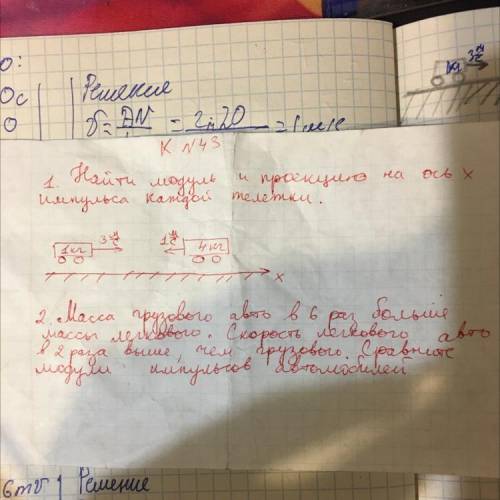 о:
Ос
О
Решение
3 м/с
К №43
1. Найти модуль и проекцию на ось x
импульса каждой тележки.
1кг 3 м/с 1 м/с 4кг
x
2. Масса грузового авто в 6 раз больше
массы легкового. Скорость легкового авто
в 2 раза выше, чем грузового. Сравните
модули импульсов автомобилей
6mv Решение